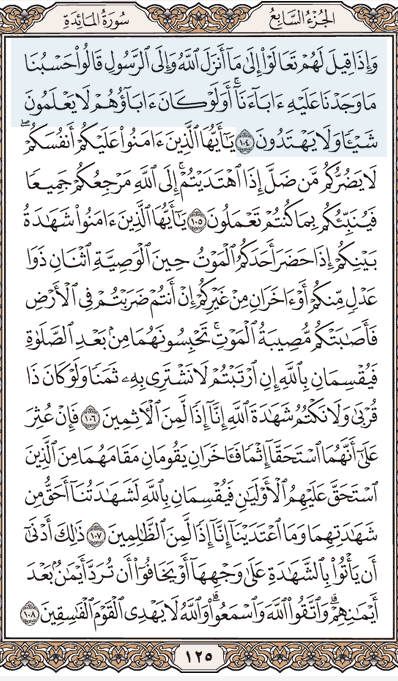 الجزء السابع سورة المائدة
وَإِذَا قِيلَ لَهُمْ تَعَالَوْاْ إِلَىٰ مَآ أَنزَلَ ٱللَّهُ وَإِلَى ٱلرَّسُولِ قَالُواْ حَسْبُنَا
مَا وَجَدْنَا عَلَيْهِ ءَابَآءَنَآۚ أَوَلَوْ كَانَ ءَابَآؤُهُمْ لَا يَعْلَمُونَ
شَيْـًٔا وَلَا يَهْتَدُونَ ١٠٤ يَـٰٓأَيُّهَا ٱلَّذِينَ ءَامَنُواْ عَلَيْكُمْ أَنفُسَكُمْۖ
لَا يَضُرُّكُم مَّن ضَلَّ إِذَا ٱهْتَدَيْتُمْۚ إِلَى ٱللَّهِ مَرْجِعُكُمْ جَمِيعًا
فَيُنَبِّئُكُم بِمَا كُنتُمْ تَعْمَلُونَ ١٠٥ يَـٰٓأَيُّهَا ٱلَّذِينَ ءَامَنُواْ شَهَـٰدَةُ
بَيْنِكُمْ إِذَا حَضَرَ أَحَدَكُمُ ٱلْمَوْتُ حِينَ ٱلْوَصِيَّةِ ٱثْنَانِ ذَوَا
عَدْلٍ مِّنكُمْ أَوْ ءَاخَرَانِ مِنْ غَيْرِكُمْ إِنْ أَنتُمْ ضَرَبْتُمْ فِى ٱلْأَرْضِ
فَأَصَـٰبَتْكُم مُّصِيبَةُ ٱلْمَوْتِۚ تَحْبِسُونَهُمَا مِنۢ بَعْدِ ٱلصَّلَوٰةِ
فَيُقْسِمَانِ بِٱللَّهِ إِنِ ٱرْتَبْتُمْ لَا نَشْتَرِى بِهِۦ ثَمَنًا وَلَوْ كَانَ ذَا
قُرْبَىٰ وَلَا نَكْتُمُ شَهَـٰدَةَ ٱللَّهِ إِنَّآ إِذًا لَّمِنَ ٱلْـَٔاثِمِينَ ١٠٦ فَإِنْ عُثِرَ
عَلَىٰٓ أَنَّهُمَا ٱسْتَحَقَّآ إِثْمًا فَـَٔاخَرَانِ يَقُومَانِ مَقَامَهُمَا مِنَ ٱلَّذِينَ
ٱسْتَحَقَّ عَلَيْهِمُ ٱلْأَوْلَيَـٰنِ فَيُقْسِمَانِ بِٱللَّهِ لَشَهَـٰدَتُنَآ أَحَقُّ مِن
شَهَـٰدَتِهِمَا وَمَا ٱعْتَدَيْنَآ إِنَّآ إِذًا لَّمِنَ ٱلظَّـٰلِمِينَ ١٠٧ ذَٰلِكَ أَدْنَىٰٓ
أَن يَأْتُواْ بِٱلشَّهَـٰدَةِ عَلَىٰ وَجْهِهَآ أَوْ يَخَافُوٓاْ أَن تُرَدَّ أَيْمَـٰنٌۢ بَعْدَ
أَيْمَـٰنِهِمْۗ وَٱتَّقُواْ ٱللَّهَ وَٱسْمَعُواْۗ وَٱللَّهُ لَا يَهْدِى ٱلْقَوْمَ ٱلْفَـٰسِقِينَ ١٠٨
١٢٥